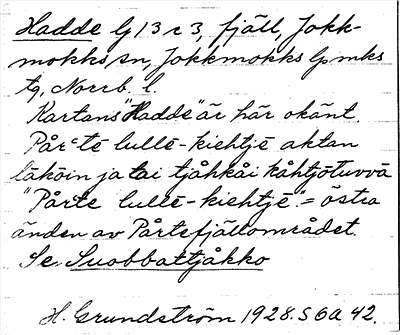 Hadde lj 13 r 3, fjäll, Jokk-
mokks sn, Jokkmokks lpmks
tg, Norrb. l.
Kartans "Hadde" är här okänt.
Pårˁtē lullē-kiehtjē aktan
läkòin ja tai tjåhkåi kåhtjòtuvvà
"Pårte lullē-kiehtjē" = östra
änden av Pårtefjällområdet.
Se Suobbattjåkko
H. Grundström 1928. S 6a 42.